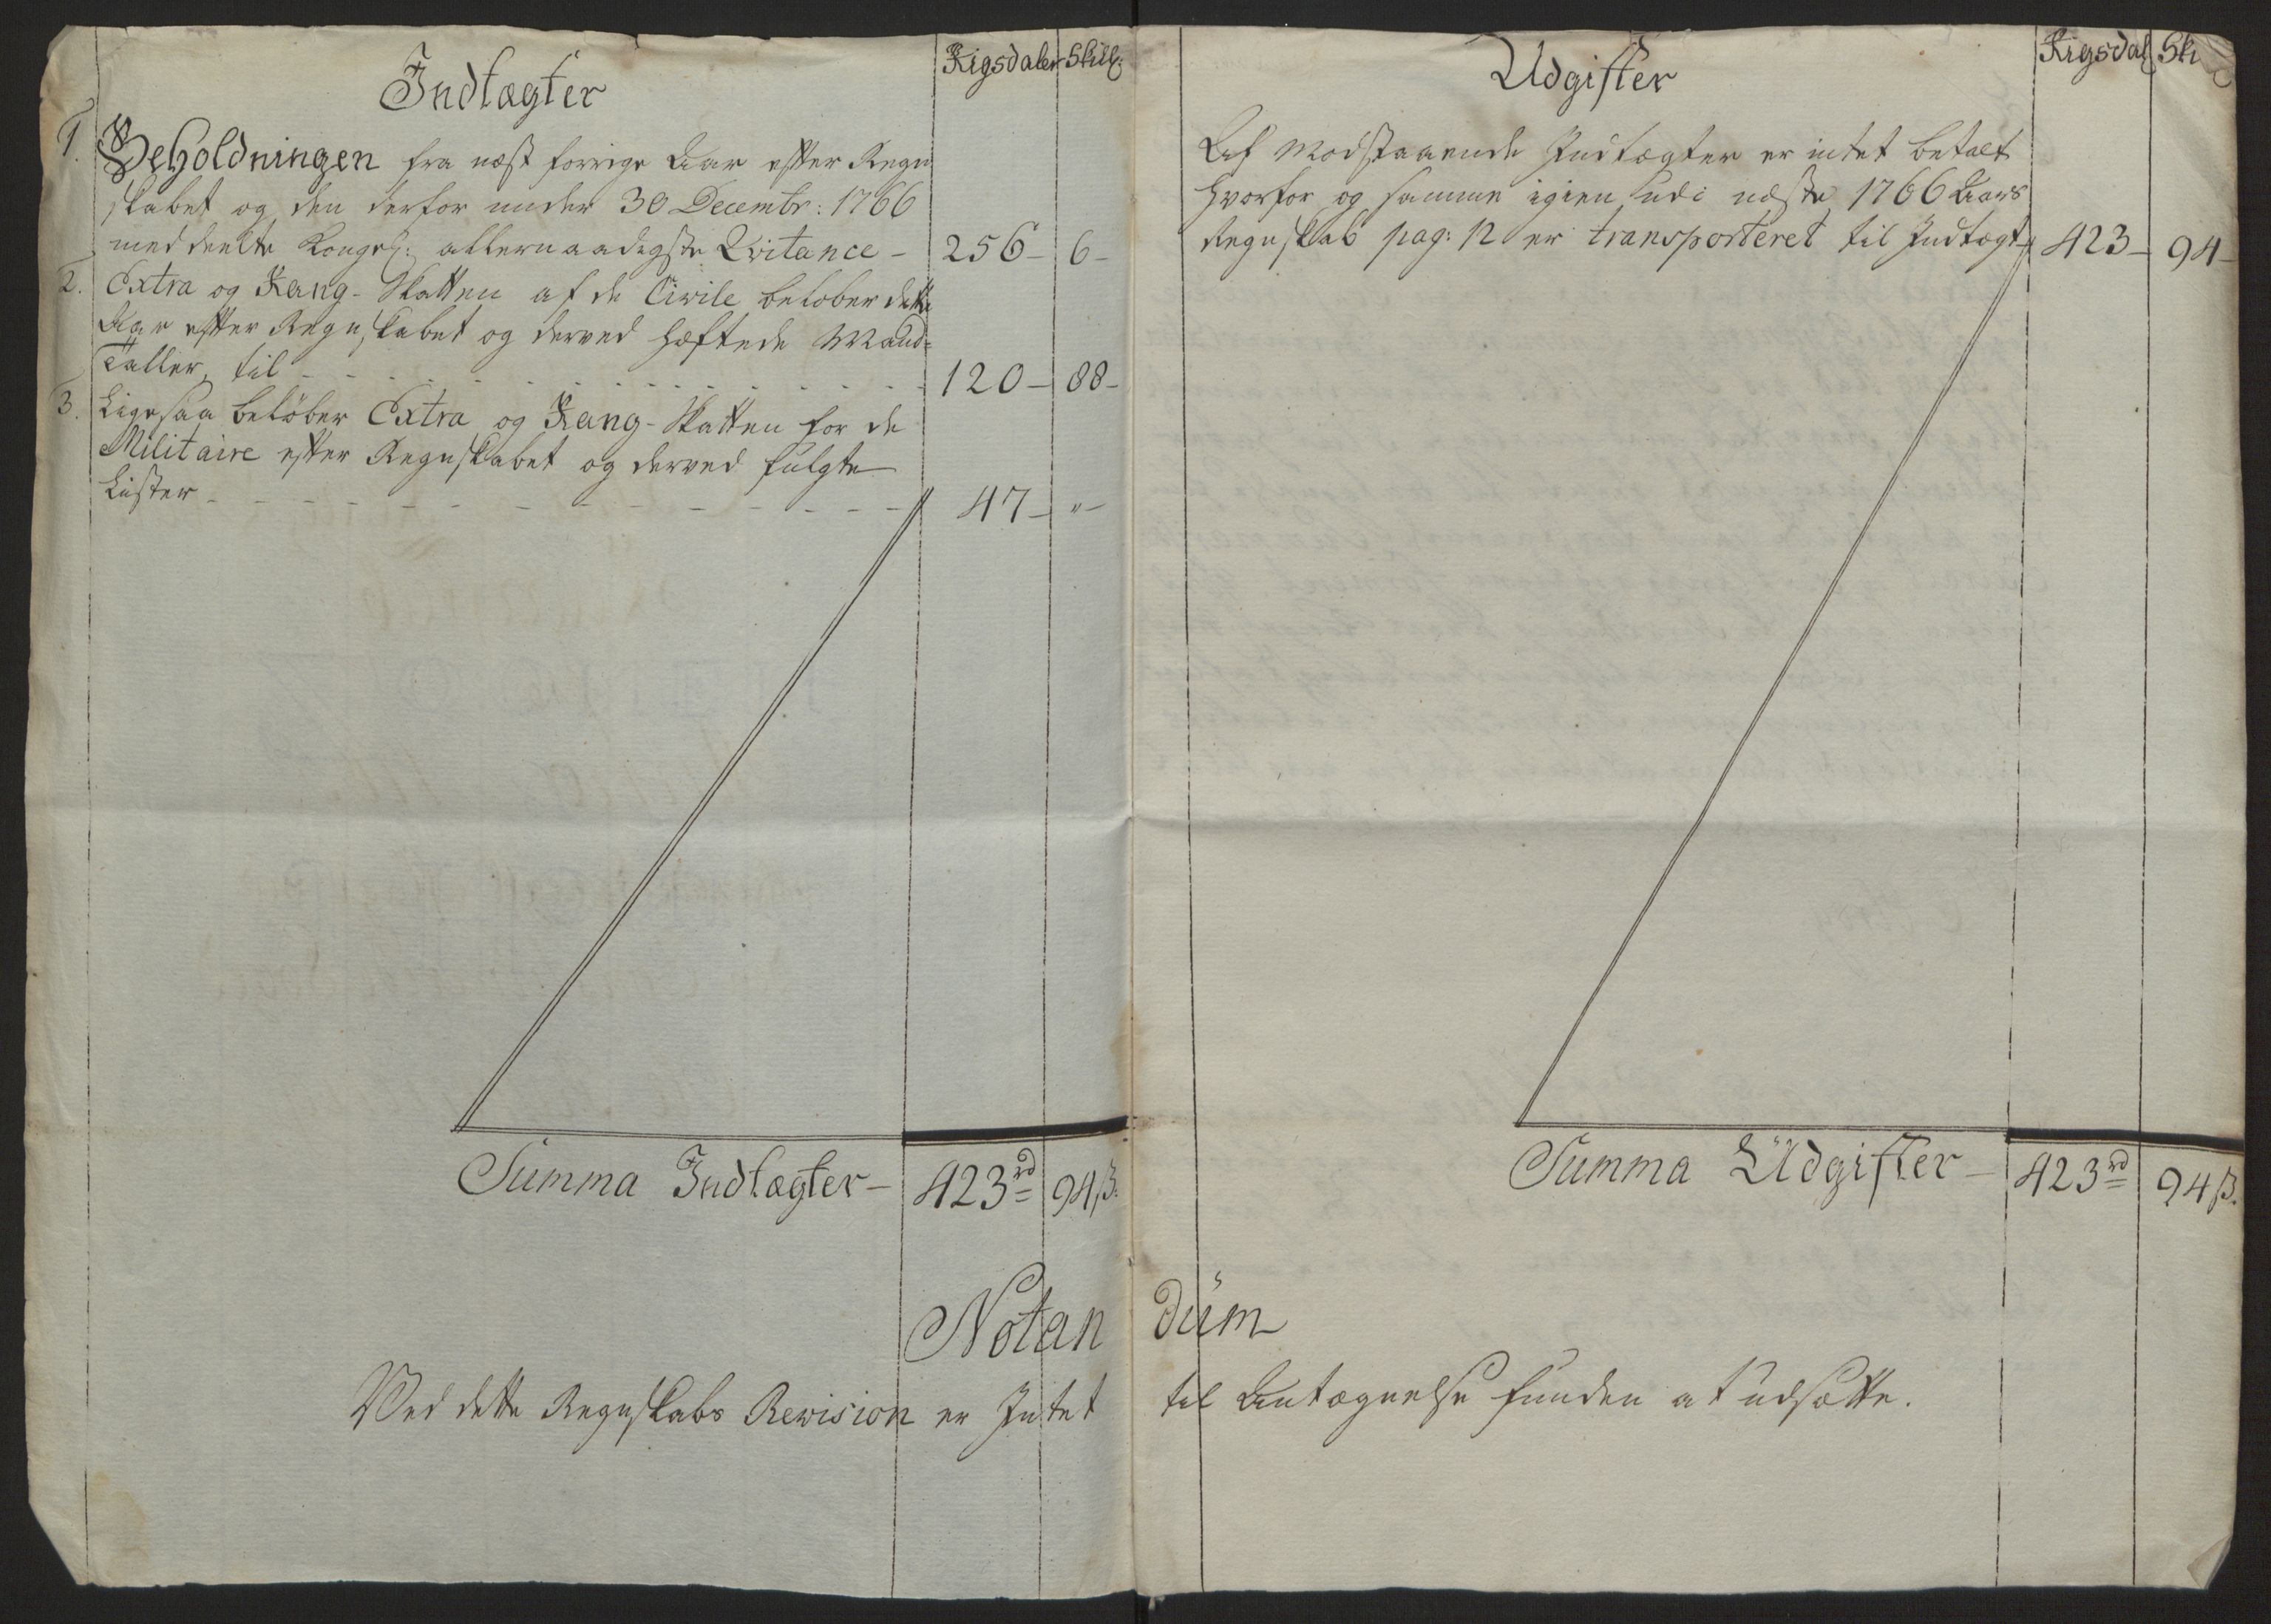 Indtægter
Rigsdaler Skill:
1. Beholdningen fra næst forrige Aar efter Regn
skabet og den derfor under 30 Decembr: 1766
meddeelte Kongel: allernaadigste Qvitance - 256- 6-
2. Extra og Rang-Skatten af de Civile beløber dette
Aar efter Regnskabet og derved hæftede Mand-
Taller, til - - - 120- 88-
3. Ligesaa beløber Extra og Rang-Skatten for de
Militaire efter Regnskabet og derved fulgte
Lister - - - 47- "-
Summa Indtægter- 423rd 94ß:
Udgifter
Rigsdal Sk
Af Modstaaende Indtægter er intet betalt
hvorfor og samme igien udi næste 1766 Aars
Regnskab pag: 12 er transporteret til Indtægt 423- 94-
Summa Udgifter- 423rd 94ß.
Notandum
Ved dette Regnskabs Revision er Intet til Antægnelse funden at udsætte.